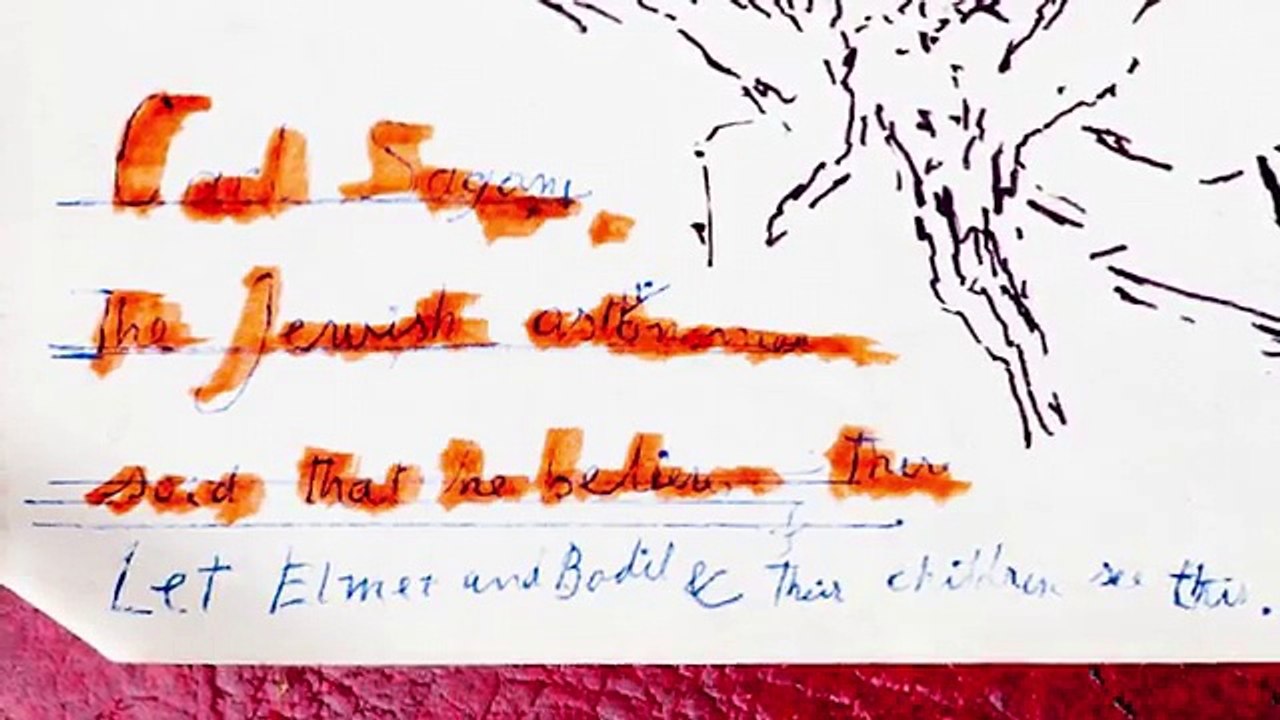 Carl Sagan.
The Jewish astronomer
said that he believes There
Let Elmer and Bodil & Their children see this.